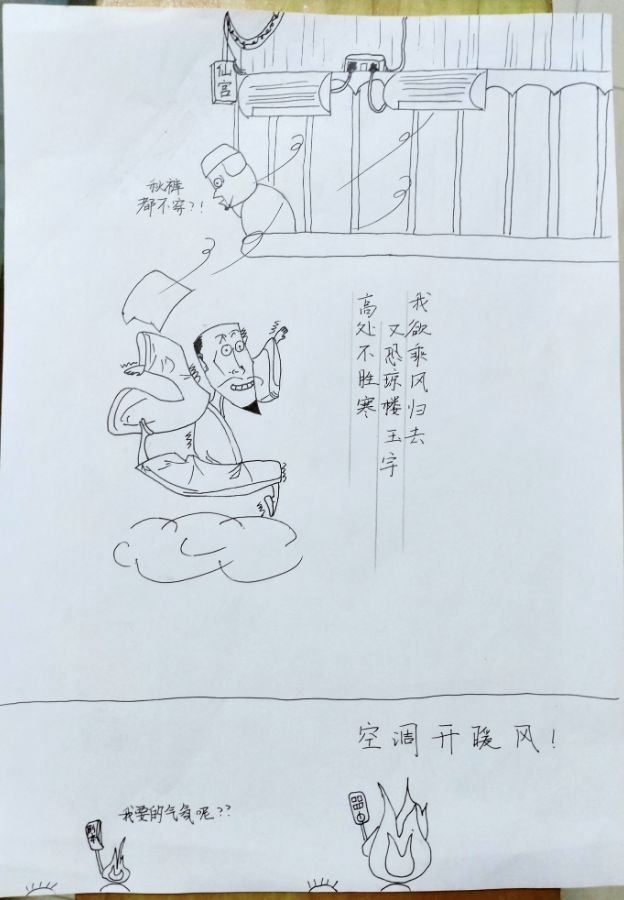 仙宫
秋裤
都不穿?!
我欲乘风归去
又恐琼楼玉宇
高处不胜寒
空调开暖风!
我要的气氛呢??